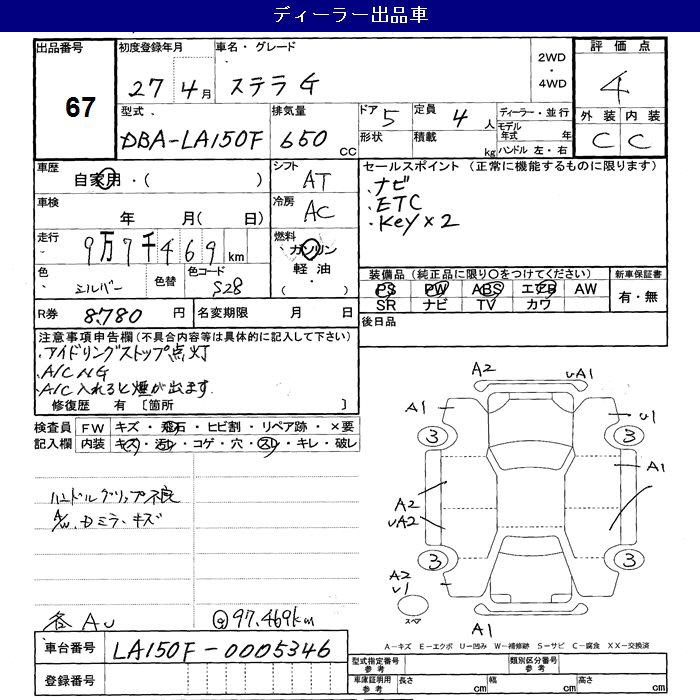 ディーラー出品車
出品番号
67
初度登録年月
27年 4月
車名・グレード
ステラG
2WD
・
4WD
評価点
4
型式
DBA-LA150F
排気量
650 CC
ドア 5
形状
定員 4人
積載 kg
ディーラー・並行
モデル年式 年
ハンドル 左・右
外装 内装
C C
車歴
自家用・( )
シフト
AT
セールスポイント (正常に機能するものに限ります)
・ナビ
・ETC
・Key×2
車検
年 月( 日)
冷房
AC
走行
9万7千469km
燃料
ガソリン
軽油
・( )
色
シルバー
色替
色コード
S28
装備品(純正品に限り○をつけてください)
PS PW ABS エアB AW
SR ナビ TV カワ
新車保証書
有・無
R券 8780円
名変期限 月 日
後日品
注意事項申告欄(不具合内容等は具体的に記入して下さい)
・アイドリングストップ点灯
・A/C NG
・A/C入れると煙が出ます
修復歴 有 〔箇所 〕
検査員 FW キズ・飛石・ヒビ割・リペア跡・×要
記入欄 内装 キズ・汚レ・コゲ・穴・スレ・キレ・破レ
ハンドルグリップ不良
A/W、Dミラーキズ
各AU
97.469km
A2
uA1
A1
u1
3
3
A1
A2
uA2
3
3
A2
u1
スペア
A1
A-キズ E-エクボ U-凹み W-補修跡 S-サビ C-腐食 XX-交換済
車台番号 LA150F-0005346
登録番号
型式指定番号 参考
類別区分番号 参考
車庫証明用 参考
長さ cm 幅 cm 高さ cm